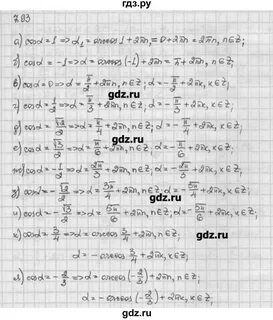 7.93
а) cosα=1 => α₁ = arccos 1 + 2πn, = 0+2πn = 2πn, n∈Z;
б) cosα = -1 => α₁ = arccos(-1) + 2πn = π + 2πn, n∈Z;
в) cosα=0 => α = π/2 + 2πn, n∈Z; α = -π/2 + 2πk, k∈Z;
г) cosα = 1/2 => α = π/3 + 2πn, n∈Z; α = -π/3 + 2πk, k∈Z;
д) cosα = √2/2 => α = π/4 + 2πn, n∈Z; α = -π/4 + 2πk, k∈Z;
е) cosα = √3/2 => α = π/6 + 2πn, n∈Z; α = -π/6 + 2πk, k∈Z;
ж) cosα = -1/2 => α = 2π/3 + 2πn, n∈Z; α = -2π/3 + 2πk, k∈Z;
з) cosα = -√2/2 => α = 3π/4 + 2πn, n∈Z; α = -3π/4 + 2πk, k∈Z;
и) cosα = -√3/2 => α = 5π/6 + 2πn, n∈Z; α = -5π/6 + 2πk, k∈Z;
к) cosα = 3/4 => α = arccos 3/4 + 2πn, n∈Z;
α = -arccos 3/4 + 2πk, k∈Z;
л) cosα = -2/3 => α = arccos(-2/3) + 2πn, n∈Z;
α = -arccos(-2/3) + 2πk, k∈Z;
гдз.ру